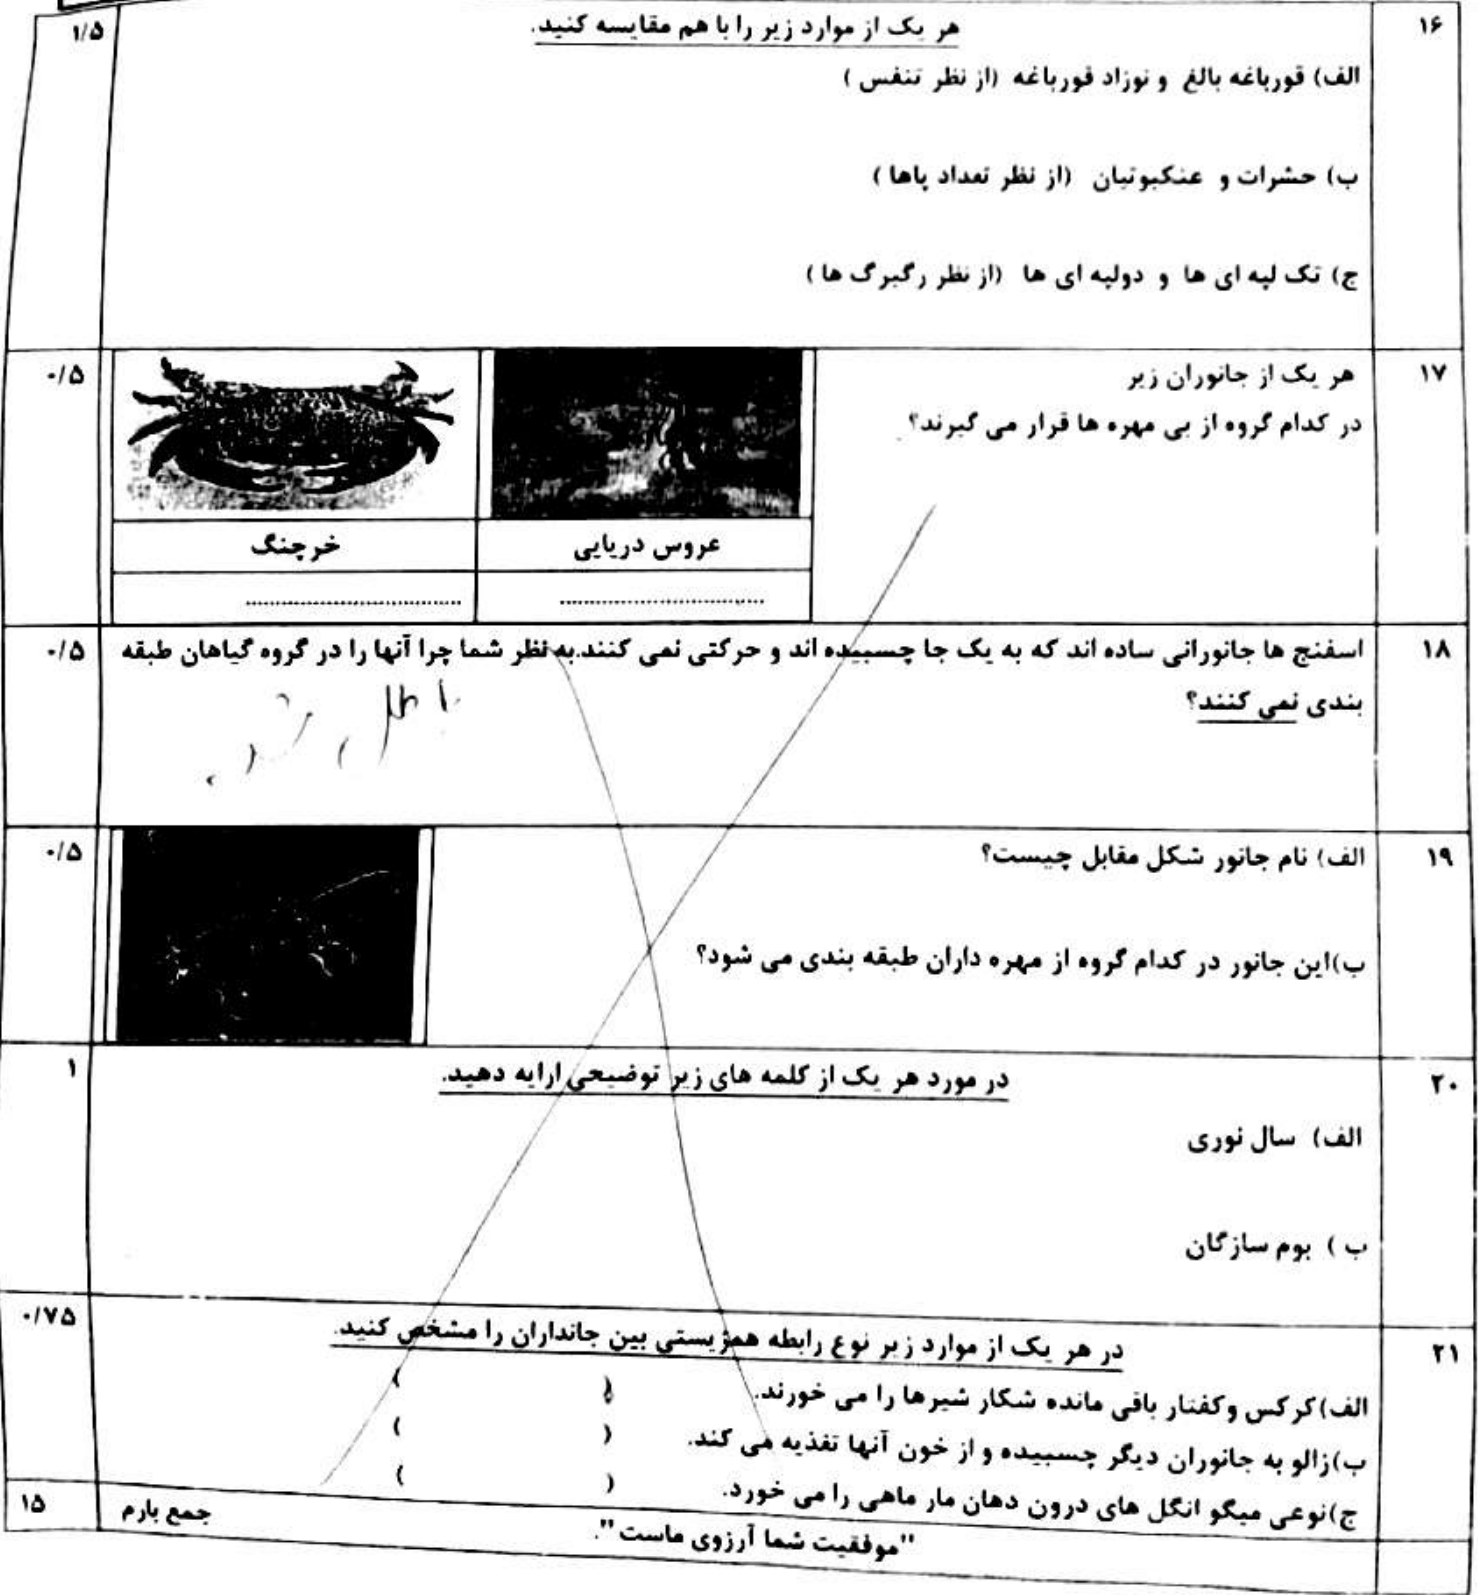 ۱۶
هر یک از موارد زیر را با هم مقایسه کنید.
۱/۵
الف) قورباغه بالغ و نوزاد قورباغه (از نظر تنفس )
ب) حشرات و عنکبوتیان (از نظر تعداد پاها )
ج) تک لپه ای ها و دولپه ای ها (از نظر رگبرگ ها )
۱۷
هر یک از جانوران زیر
۰/۵
در کدام گروه از بی مهره ها قرار می گیرند؟
عروس دریایی
خرچنگ
۱۸
اسفنج ها جانورانی ساده اند که به یک جا چسبیده اند و حرکتی نمی کنند.به نظر شما چرا آنها را در گروه گیاهان طبقه
۰/۵
بندی نمی کنند؟
باطل شد.
۱۹
الف) نام جانور شکل مقابل چیست؟
۰/۵
ب)این جانور در کدام گروه از مهره داران طبقه بندی می شود؟
۲۰
در مورد هر یک از کلمه های زیر توضیحی ارایه دهید.
۱
الف) سال نوری
ب ) بوم سازگان
۲۱
در هر یک از موارد زیر نوع رابطه همزیستی بین جانداران را مشخص کنید.
۰/۷۵
الف)کرکس وکفتار باقی مانده شکار شیرها را می خورند. ( )
ب)زالو به جانوران دیگر چسبیده و از خون آنها تغذیه می کند. ( )
ج)نوعی میگو انگل های درون دهان مار ماهی را می خورد. ( )
جمع بارم
۱۵
"موفقیت شما آرزوی ماست".